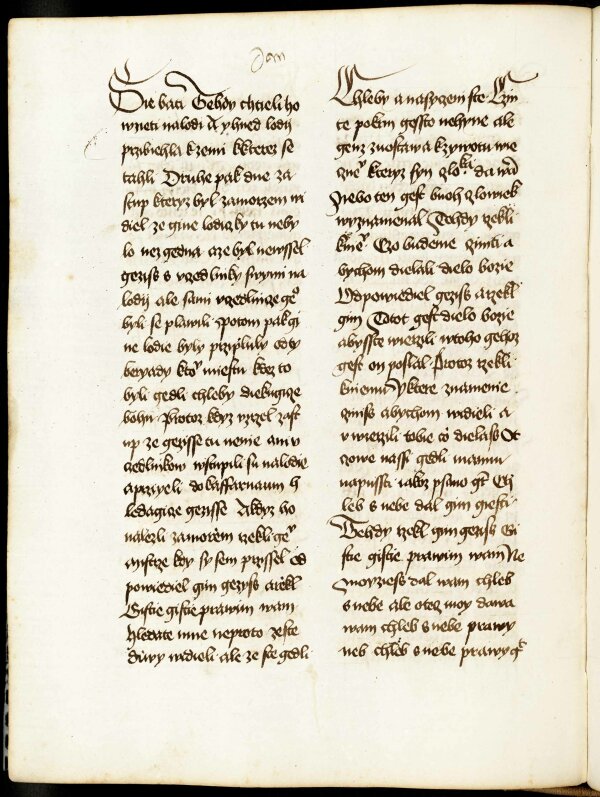 Jan
Sie bati Tehdy chtieli ho
wzieti nalodi A yhned lodij
przibiehla kzemi kkterez se
tahli Druhe pak dne za
stup kteryz byl zamorzem wi
diel ze gine lodiczky tu neby
lo nez gedna a ze byl newssel
gezijss s vczedlniky swymi na
lodij ale sami vczedlnicze ge°
byli se plawili Potom pak gi
ne lodie byly przipluly od ty
beryady kto° miestu kdez to
byli gedli chleby diekugicze
bohu Protoz kdyz vzrzel zast
up ze gezisse tu nenie ani v
czedlnikow wstupili su nalodie
a przigeli do kaffarnaum h
ledagicze gezisse A kdyz ho
nalezli zamorzem rzekli ge°
mistrze kdy sy sem przissel Od
powiediel gim gezyss a rzekl
Gistie gistie prawim wam
hledate mne neproto zeste
diwy widieli ale ze ste gedli
Chleby a nasyczeni ste Czin
te pokrm gessto nehyne ale
genz zuostawa kzywotu wie
czne° kteryz syn czlo.ka da wam
Nebo ten gest buoh czlowiek
wyznamenal Tehdy rzekli
kne° Czo budeme cziniti a
bychom dielali dielo bozie
Odpowiediel geziss a rzekl
gim Totot gest dielo bozie
abysste wierzili wtoho gehoz
gest on poslal Protoz rzekli
kniemu Yktere znamenie
czinijss abychom widieli a
vwierzili tobie co dielass Ot
czowe nassi gedli mannu
napussti iakoz psano gt Ch
leb s nebe dal gim giesti
Tehdy rzekl gim geziss Gi
stie gistie prawim wam Ne
moyziess dal wam chleb
s nebe ale otecz moy dawa
wam chleb s nebe prawy
neb chleb s nebe prawy gt